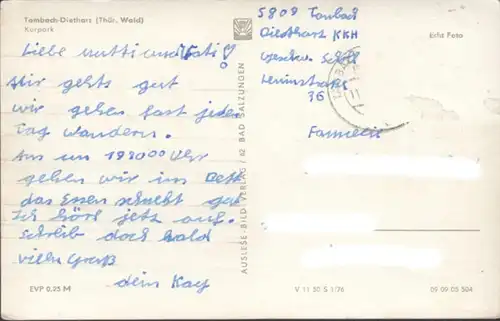 Tambach-Dietharz (Thür. Wald)
Kurpark
Liebe Mutti und Vati!
Mir gehts gut
wir gehen fast jeden
Tag wandern.
Am um 192000 Uhr
gehen wir im Bett
das Essen schmekt gut
Ich hörl jetz auf.
schreib doch bald
viele Gruß
dein Kay
EVP 0,25 M
AUSLESE-BILD-VERLAG / 82 BAD SALZUNGEN
5809 Tambach
Dietharz KKH
Geschw. Scholl
36
Erfa Foto
Familie
V 11 50 S 1/76
09 09 05 504